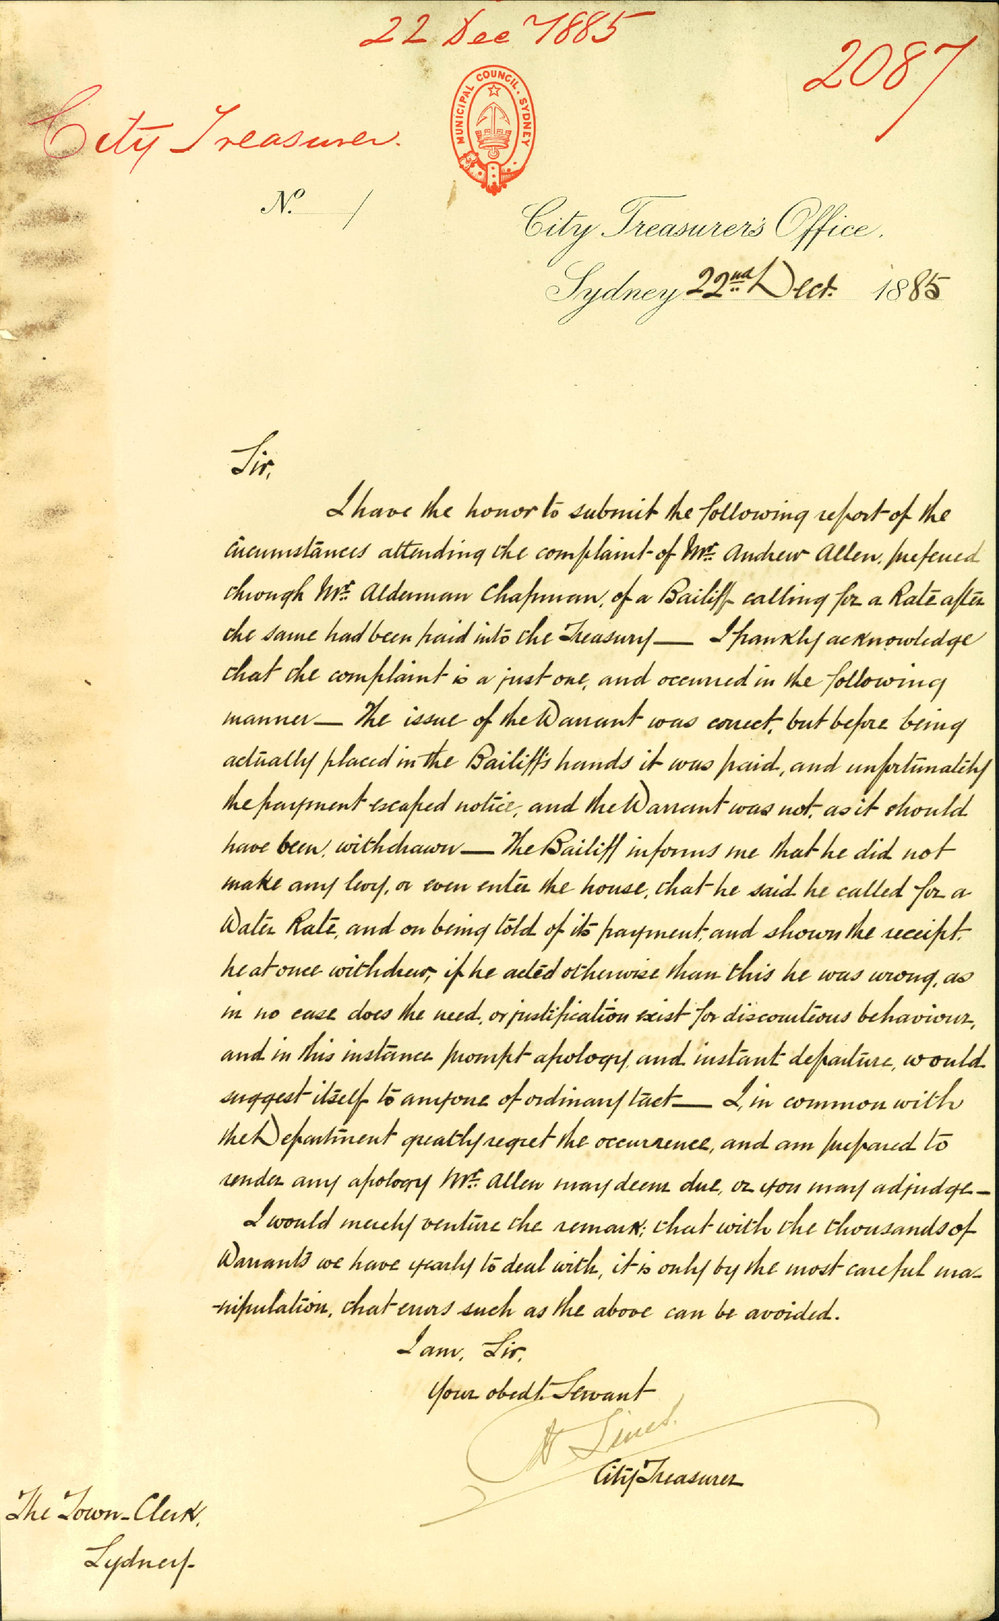 22 Dec 1885
2087
City Treasurer.
MUNICIPAL COUNCIL. SYDNEY
No. /
City Treasurer's Office.
Sydney 22nd Decr. 1885
Sir,
I have the honor to submit the following report of the
circumstances attending the complaint of Mr. Andrew Allen, preferred
through Mr. Alderman Chapman, of a Bailiff calling for a Rate after
the same had been paid into the Treasury — I frankly acknowledge
that the complaint is a just one, and occurred in the following
manner — The issue of the Warrant was correct, but before being
actually placed in the Bailiff's hands it was paid, and unfortunately
the payment escaped notice, and the Warrant was not, as it should
have been, withdrawn — The Bailiff informs me that he did not
make any levy, or even enter the house, that he said he called for a
Water Rate, and on being told of its payment, and shown the receipt,
he at once withdrew, if he acted otherwise than this he was wrong, as
in no case does the need, or justification exist for discourteous behaviour,
and in this instance prompt apology, and instant departure, would
suggest itself to anyone of ordinary tact — I, in common with
the Department greatly regret the occurrence, and am prepared to
render any apology Mr. Allen may deem due, or you may adjudge —
I would merely venture the remark, that with the thousands of
Warrants we have yearly to deal with, it is only by the most careful ma-
-nipulation, that errors such as the above can be avoided.
I am, Sir,
Your obedt. Servant
City Treasurer
The Town-Clerk,
Sydney.